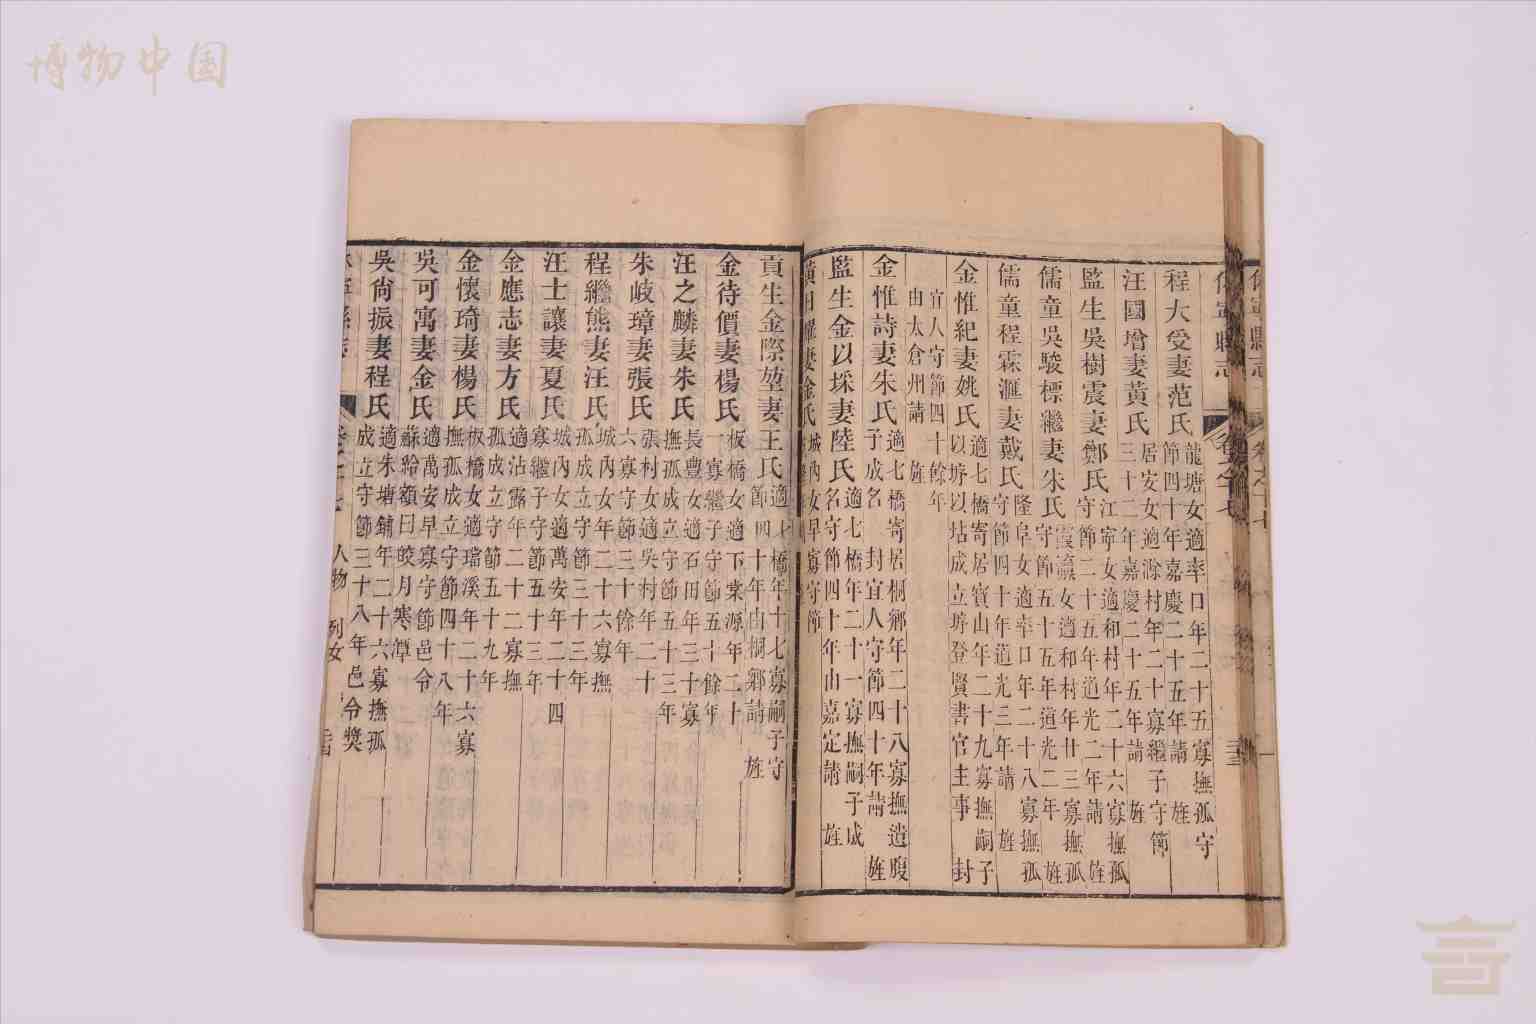 博物中国
休寧縣志
卷之十七
程大受妻范氏
龍塘女適率口年二十五寡撫孤守
節四十年嘉慶二十五年請 旌
汪國增妻黃氏
居安女適滁村年二十寡繼子守節
三十二年嘉慶二十五年請 旌
監生吳樹震妻鄭氏
江寧女適和村年二十六寡撫孤
守節二十五年道光二年請 旌
儒童吳駿標繼妻朱氏
霞瀛女適和村年廿三寡撫孤
守節五十五年道光二年 旌
儒童程霖滙妻戴氏
隆阜女適率口年二十八寡撫孤
守節四十年道光三年請 旌
金惟紀妻姚氏
適七橋寄居寶山年二十九寡撫嗣子
以垿以坫成立垿登賢書官主事 封
宜人守節四十餘年
由太倉州請 旌
金惟詩妻朱氏
適七橋寄居桐鄉年二十八寡撫遺腹
子成名 封宜人守節四十年請 旌
監生金以埰妻陸氏
適七橋年二十一寡撫嗣子成
名守節四十年由嘉定請 旌
妻金氏
城內女早寡守節
貢生金際堃妻王氏
適七橋年十七寡嗣子守
節四十年由桐鄉請 旌
金待價妻楊氏
板橋女適下棠源年二十
一寡繼子守節五十餘年
汪之麟妻朱氏
長豐女適石田年三十寡
撫孤成立守節五十三年
朱岐璋妻張氏
張村女適吳村年二十
六寡守節三十餘年
程繼熊妻汪氏
城內女年二十六寡撫
孤成立守節三十三年
汪士讓妻夏氏
城內女適萬安年二十四
寡繼子守節五十三年
金應志妻方氏
適沾露年二十二寡撫
孤成立守節五十九年
金懷琦妻楊氏
板橋女適璫溪年二十六寡
撫孤成立守節四十八年
吳可寓妻金氏
適萬安早寡守節邑令
蘇給額曰皎月寒潭
吳尚振妻程氏
適朱塘鋪年二十六寡撫孤
成立守節三十八年邑令獎
休寧縣志
卷之十七 人物 列女